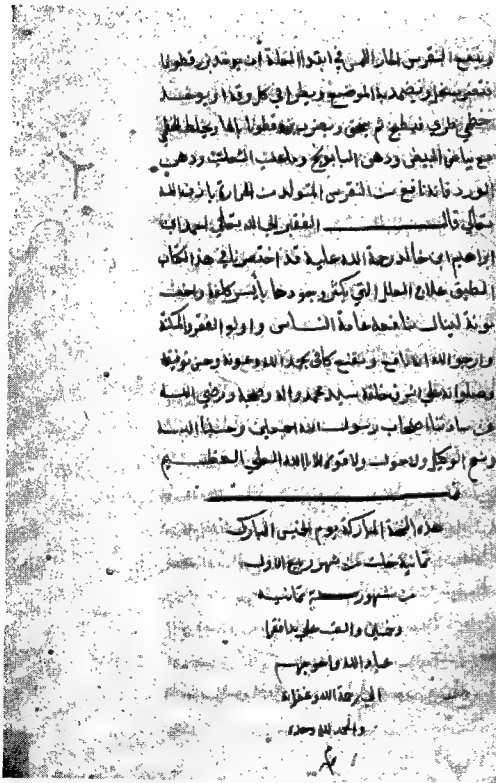 وينفع النقرس الحار الدموي في ابتدا العلة ان يوخذ بزر قطونا
فتعجن بخل ويضمد به الموضع ويطلى في كل وقت او يوخذ
خطمي طري فيطبخ ثم يدق ويضرب بزر قطونا بالماء ويخلط الخطمي
مع بياض البيض ودهن البابونج وما عنب الثعلب ودهن
الورد فانه نافع من النقرس المتولد من الحرارة باذن الله
تعالى قال الفقير الى الله تعالى احمد بن
ابراهيم ابن خالد رحمة الله عليه قد اختصرنا في هذا الكتاب
لطبق علاج العلل التي يكثر وجودها بايسر كلفة واخف
مونة لينال منافعه عامة الناس واولوا الفقر والمسكنة
وارجو الله انه نافع ومقنع كافي بحمد الله وعونه وحسن توفيقه
وصلواته على اشرف خلقه سيدنا محمد واله وصحبه ورضي الله
عن ساداتنا اصحاب رسول الله اجمعين وحسبنا الله
ونعم الوكيل ولا حول ولا قوة الا بالله العلي العظيم
هذه النسخة المباركة يوم الخميس المبارك
ثمانية خلت من شهر ربيع الاول
من شهور سنة ثمانية
وخمسين والف على يد افقر
عباد الله واحوجهم
الى رحمة الله وغفرانه
والحمد لله وحده